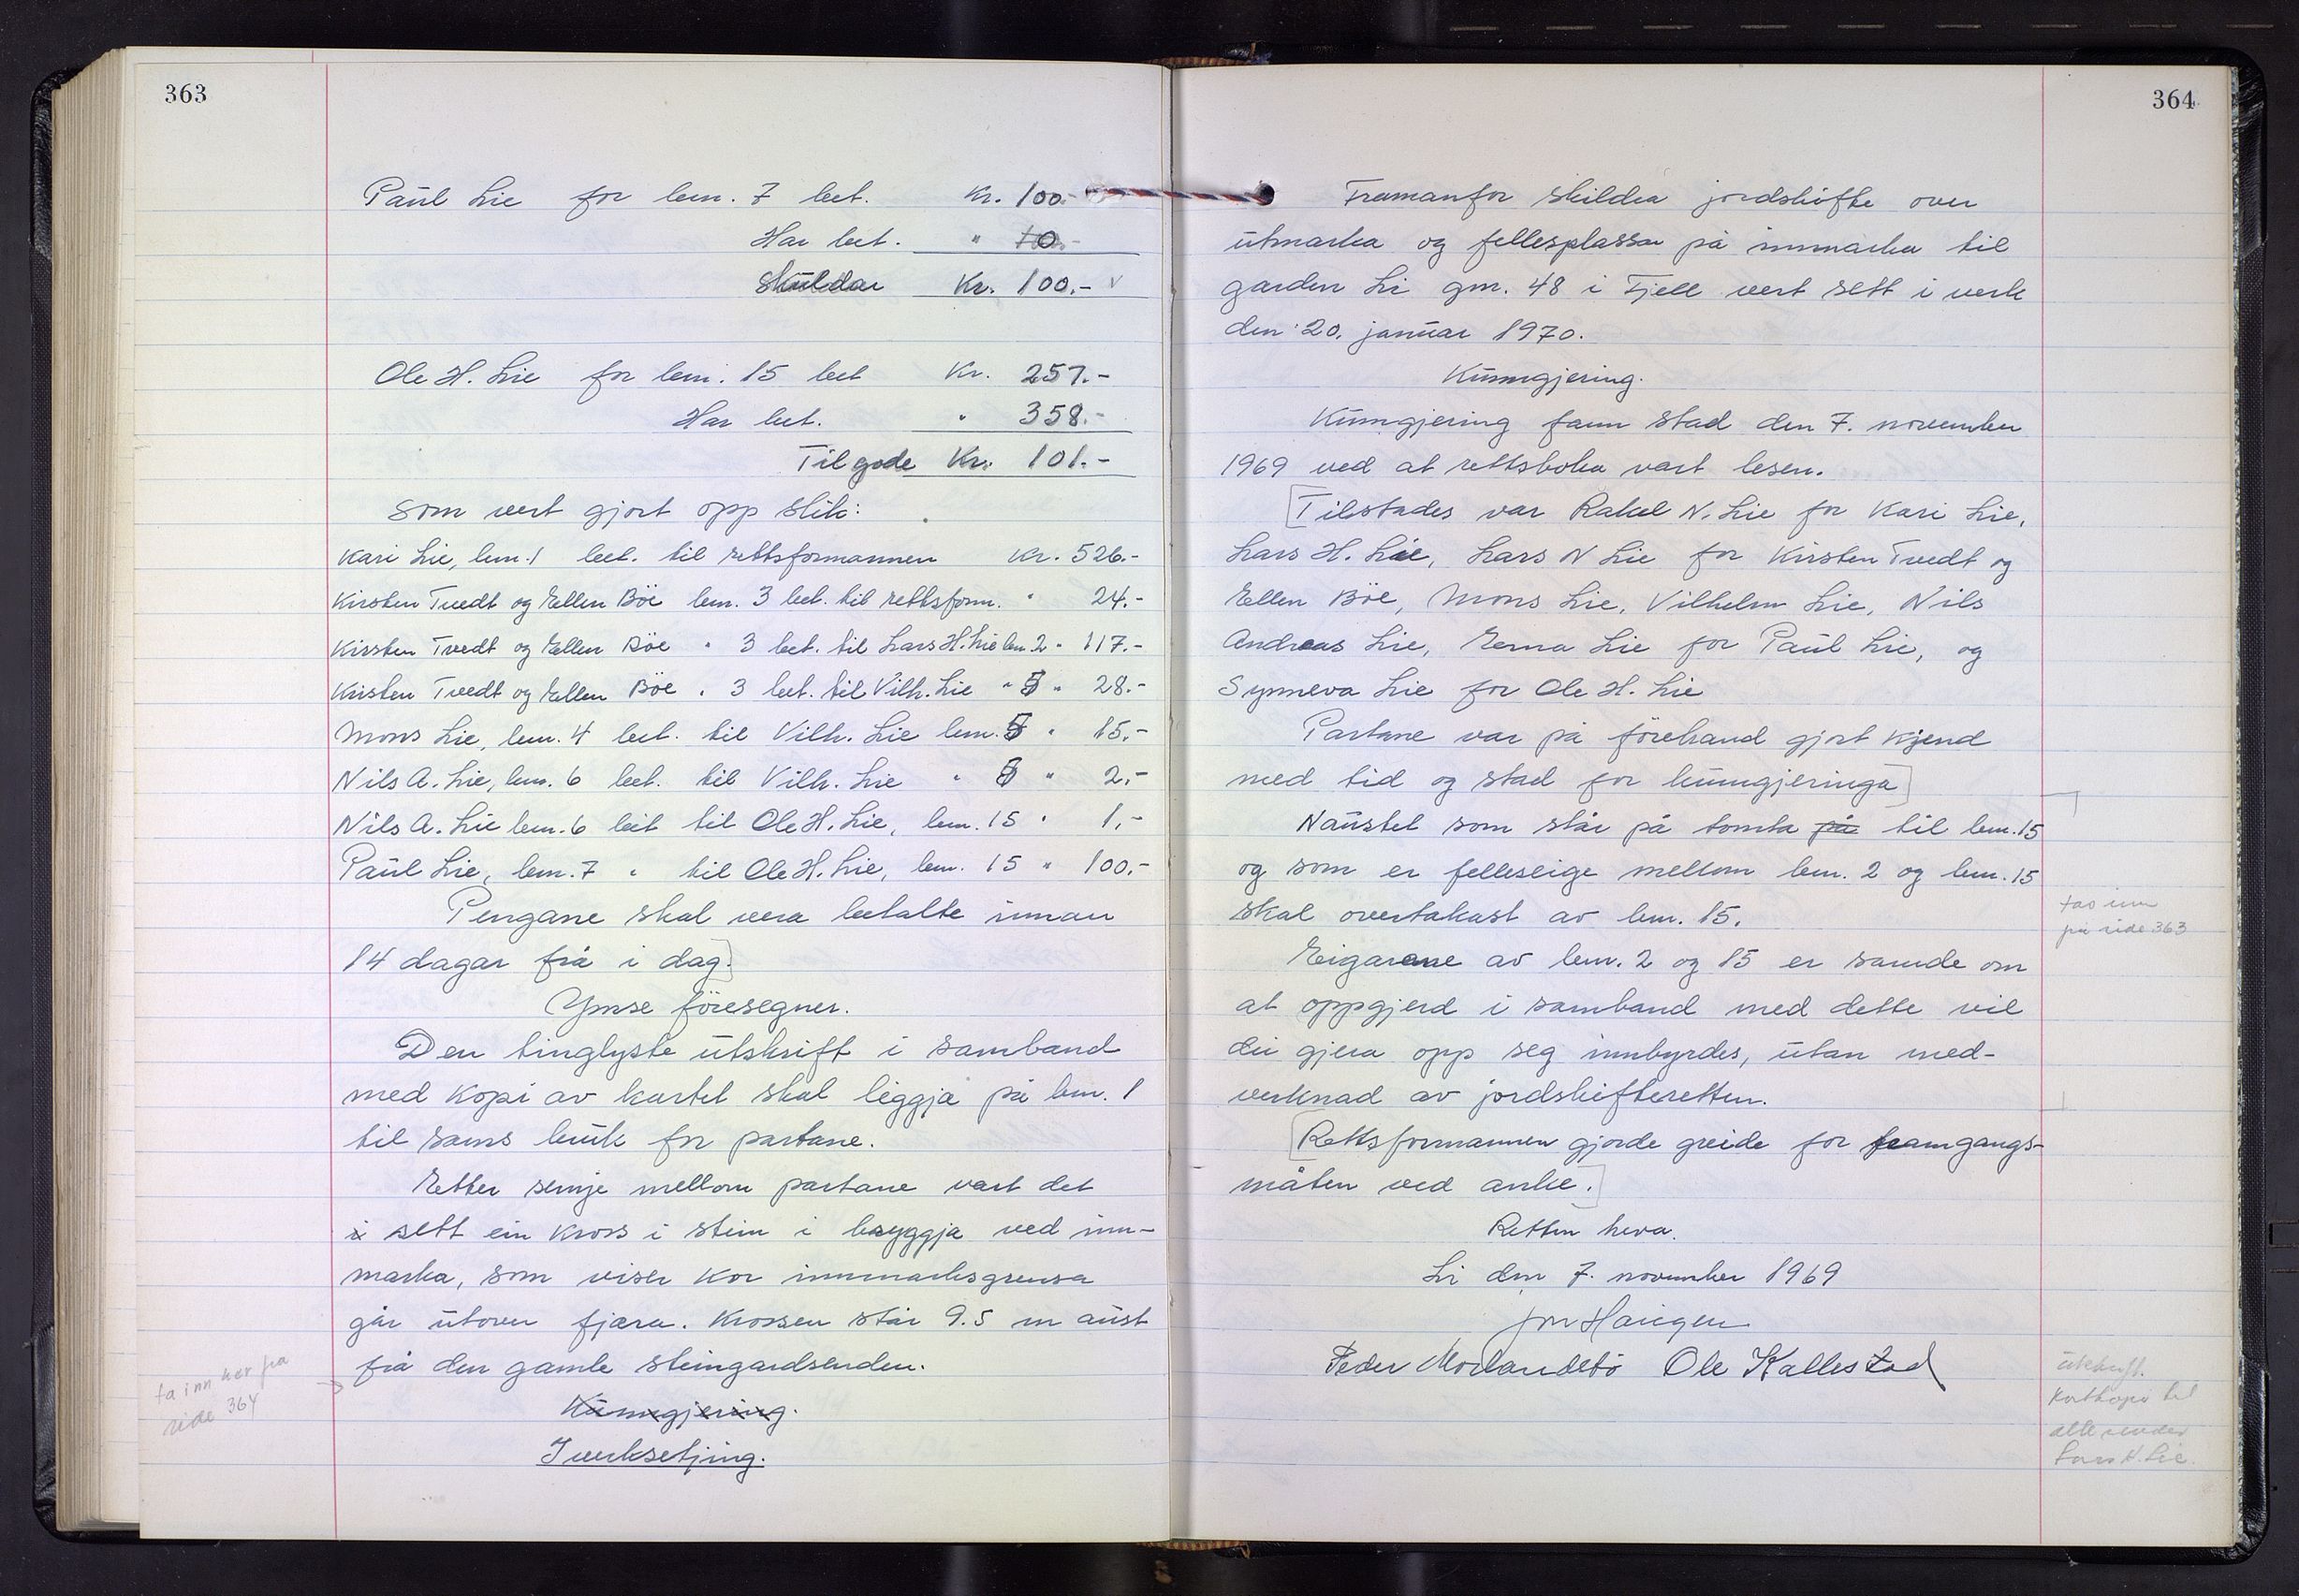 363
Paul Lie for lem. 7 bet. Kr. 100.-
Har bet. " 0
Skuldar Kr. 100.-
Ole H. Lie for lem. 15 bet Kr. 257.-
Har bet. " 358.-
Tilgode Kr. 101.-
som vert gjort opp slik:
Kari Lie, lem. 1 bet. til rettsformannen Kr. 526.-
Kirsten Tvedt og Ellen Böe lem. 3 bet. til rettsform. " 24.-
Kirsten Tvedt og Ellen Böe " 3 bet. til Lars H. Lie lem 2 " 117.-
Kirsten Tvedt og Ellen Böe " 3 bet. til Vilh. Lie " 5 " 28.-
Mons Lie, lem. 4 bet. til Vilh. Lie lem. 5 " 15.-
Nils A. Lie, lem. 6 bet. til Vilh. Lie " 5 " 2.-
Nils A. Lie lem. 6 bet til Ole H. Lie, lem. 15 " 1.-
Paul Lie, lem. 7 " til Ole H. Lie, lem. 15 " 100.-
Pengane skal vera betalte innan
14 dagar frå i dag.]
Ymse föresegner.
Den tinglyste utskrift i samband
med kopi av kartet skal liggja på lem. 1
til sams bruk for partane.
Etter semje mellom partane vart det
i sett ein kross i stein i bryggja ved inn-
marka, som viser kor innmarksgrensa
går utover fjæra. Krossen står 9.5 m aust
frå den gamle steingardsenden.
ta inn her fra
side 364
Kunngjering.
Iverksetjing.
364
Framanfor skildra jordskifte over
utmarka og fellesplassar på innmarka til
garden Li gnr. 48 i Fjell vert sett i verk
den 20. januar 1970.
Kunngjering.
Kunngjering fann stad den 7. november
1969 ved at rettsboka vart lesen.
[Tilstades var Rakel N. Lie for Kari Lie,
Lars H. Lie, Lars N Lie for Kirsten Tvedt og
Ellen Böe, Mons Lie, Vilhelm Lie, Nils
Andreas Lie, Erna Lie for Paul Lie, og
Synneva Lie for Ole H. Lie
Partane var på förehand gjort kjend
med tid og stad for kunngjeringa]
Naustet som står på tomta på til lem. 15
og som er felleseige mellom lem. 2 og lem. 15
skal overtakast av lem. 15.
tas inn
på side 363
Eigarane av lem. 2 og 15 er samde om
at oppgjerd i samband med dette vil
dei gjera opp seg innbyrdes, utan med-
verknad av jordskifteretten.
[Rettsformannen gjorde greide for framgangs-
måten ved anke.]
Retten heva.
Li den 7. november 1969
Jon Haugen
Peder Morlandstø Ole Kallestad
utskrift.
Kartkopi til
alle
Lars H. Lie